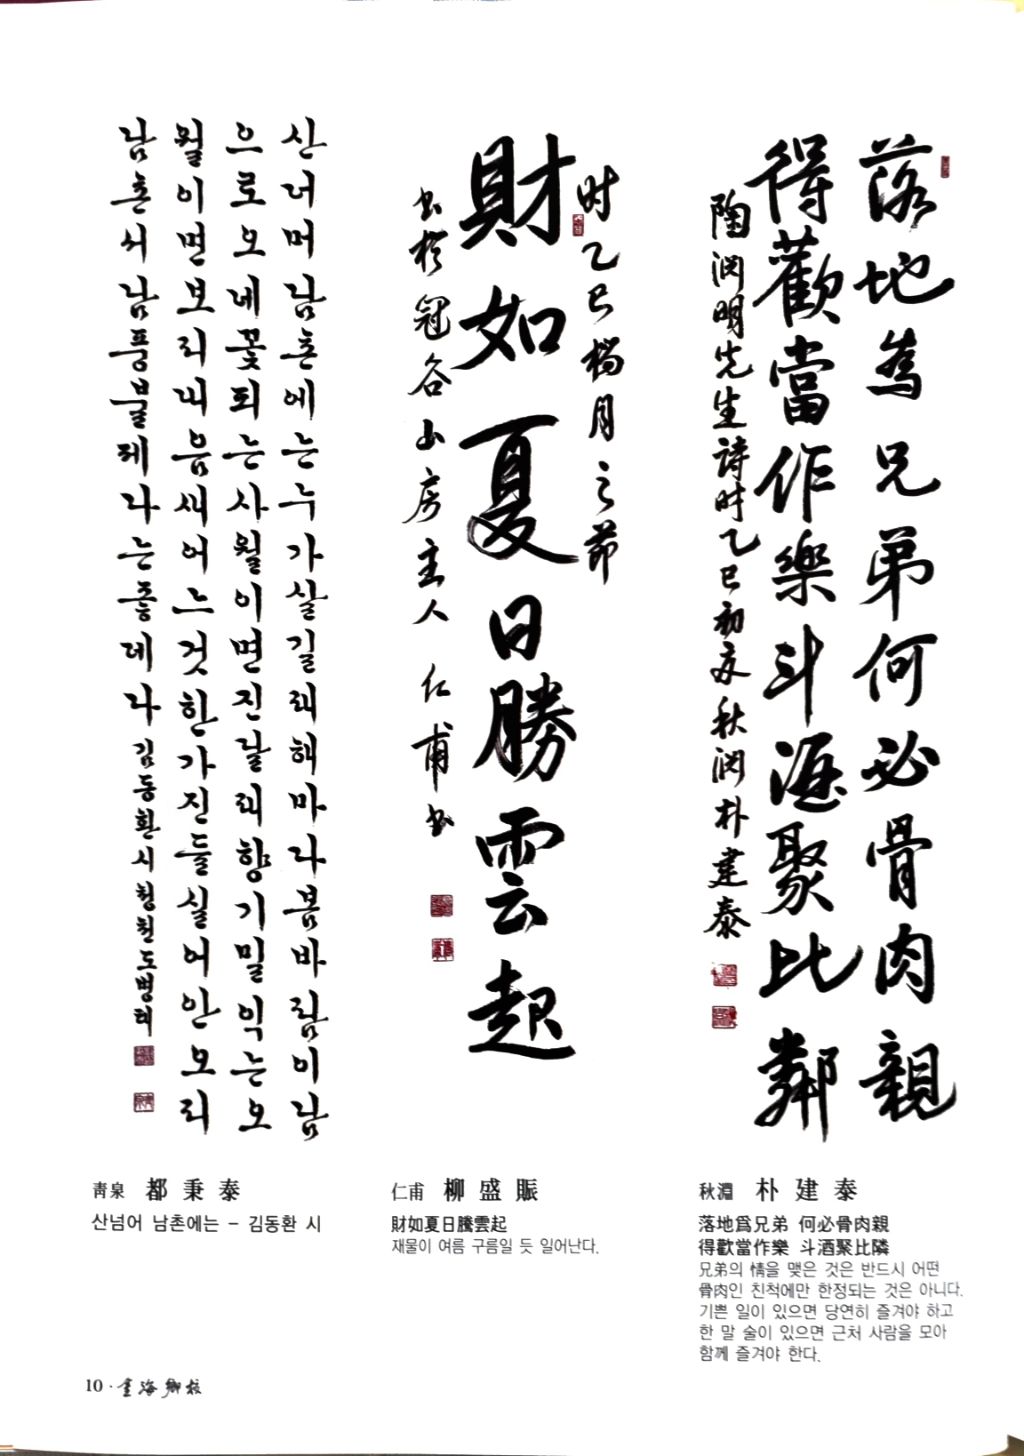 落地為兄弟何必骨肉親
得歡當作樂斗酒聚比鄰
陶淵明先生詩时乙巳初夏秋淵朴建泰
时乙巳榴月之節
財如夏日勝雲起
书於冠谷山房主人 仁甫书
산너머남촌에는누가살길래해마다봄바람이남
으로오네꽃피는사월이면진달래향기밀익는오
월이면보리내음새어느것한가진들실어안오리
남촌서남풍불제나는좋데나 김동환시 청천도병태
靑泉 都秉泰
산넘어 남촌에는 - 김동환 시
仁甫 柳盛賑
財如夏日騰雲起
재물이 여름 구름일 듯 일어난다.
秋淵 朴建泰
落地爲兄弟 何必骨肉親
得歡當作樂 斗酒聚比隣
兄弟의 情을 맺은 것은 반드시 어떤
骨肉인 친척에만 한정되는 것은 아니다.
기쁜 일이 있으면 당연히 즐겨야 하고
한 말 술이 있으면 근처 사람을 모아
함께 즐겨야 한다.
10 · 金海鄕校